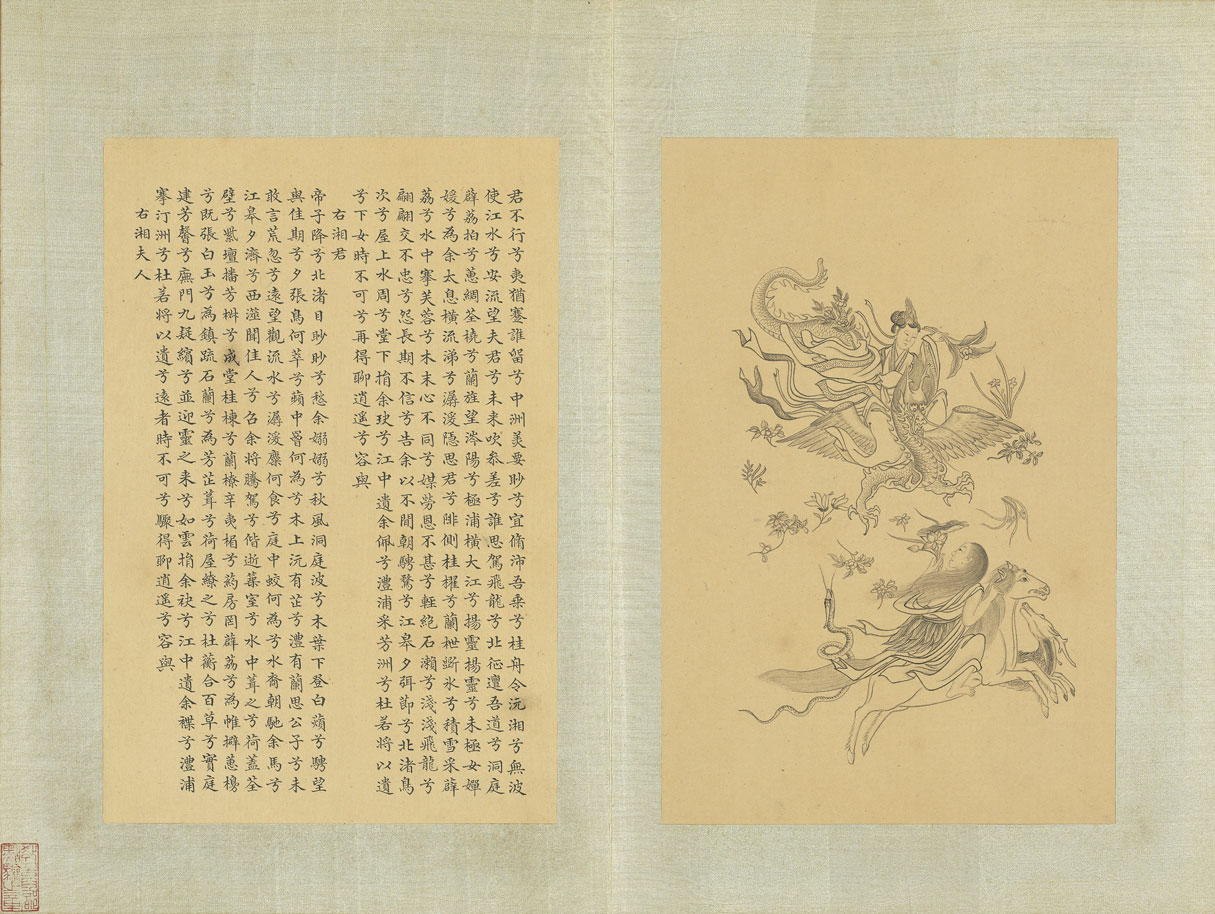 君不行兮夷猶蹇誰留兮中洲美要眇兮宜脩沛吾乗兮桂舟令沅湘兮無波
使江水兮安流望夫君兮未来吹參差兮誰思駕飛龍兮北征邅吾道兮洞庭
薜荔拍兮蕙綢荃橈兮蘭旌望涔陽兮極浦橫大江兮揚靈揚靈兮未極女嬋
媛兮為余太息橫流涕兮潺湲隱思君兮陫側桂櫂兮蘭枻斲氷兮積雪采薜
荔兮水中搴芙蓉兮木末心不同兮媒勞恩不甚兮輕絶石瀨兮淺淺飛龍兮
翩翩交不忠兮怨長期不信兮告余以不閒朝騁騖兮江皋夕弭節兮北渚鳥
次兮屋上水周兮堂下捐余玦兮江中遺余佩兮澧浦采芳洲兮杜若將以遺
兮下女時不可兮再得聊逍遙兮容與
右湘君
帝子降兮北渚目眇眇兮愁余嫋嫋兮秋風洞庭波兮木葉下登白薠兮騁望
與佳期兮夕張鳥何萃兮蘋中罾何為兮木上沅有芷兮澧有蘭思公子兮未
敢言荒忽兮遠望觀流水兮潺湲麋何食兮庭中蛟何為兮水裔朝馳余馬兮
江皋夕濟兮西澨聞佳人兮召余將騰駕兮偕逝築室兮水中葺之兮荷蓋荃
壁兮紫壇播芳椒兮成堂桂棟兮蘭橑辛夷楣兮葯房罔薜荔兮為帷擗蕙櫋
兮既張白玉兮為鎮疏石蘭兮為芳芷葺兮荷屋繚之兮杜蘅合百草兮實庭
建芳馨兮廡門九疑繽兮並迎靈之来兮如雲捐余袂兮江中遺余褋兮澧浦
搴汀洲兮杜若將以遺兮遠者時不可兮驟得聊逍遙兮容與
右湘夫人